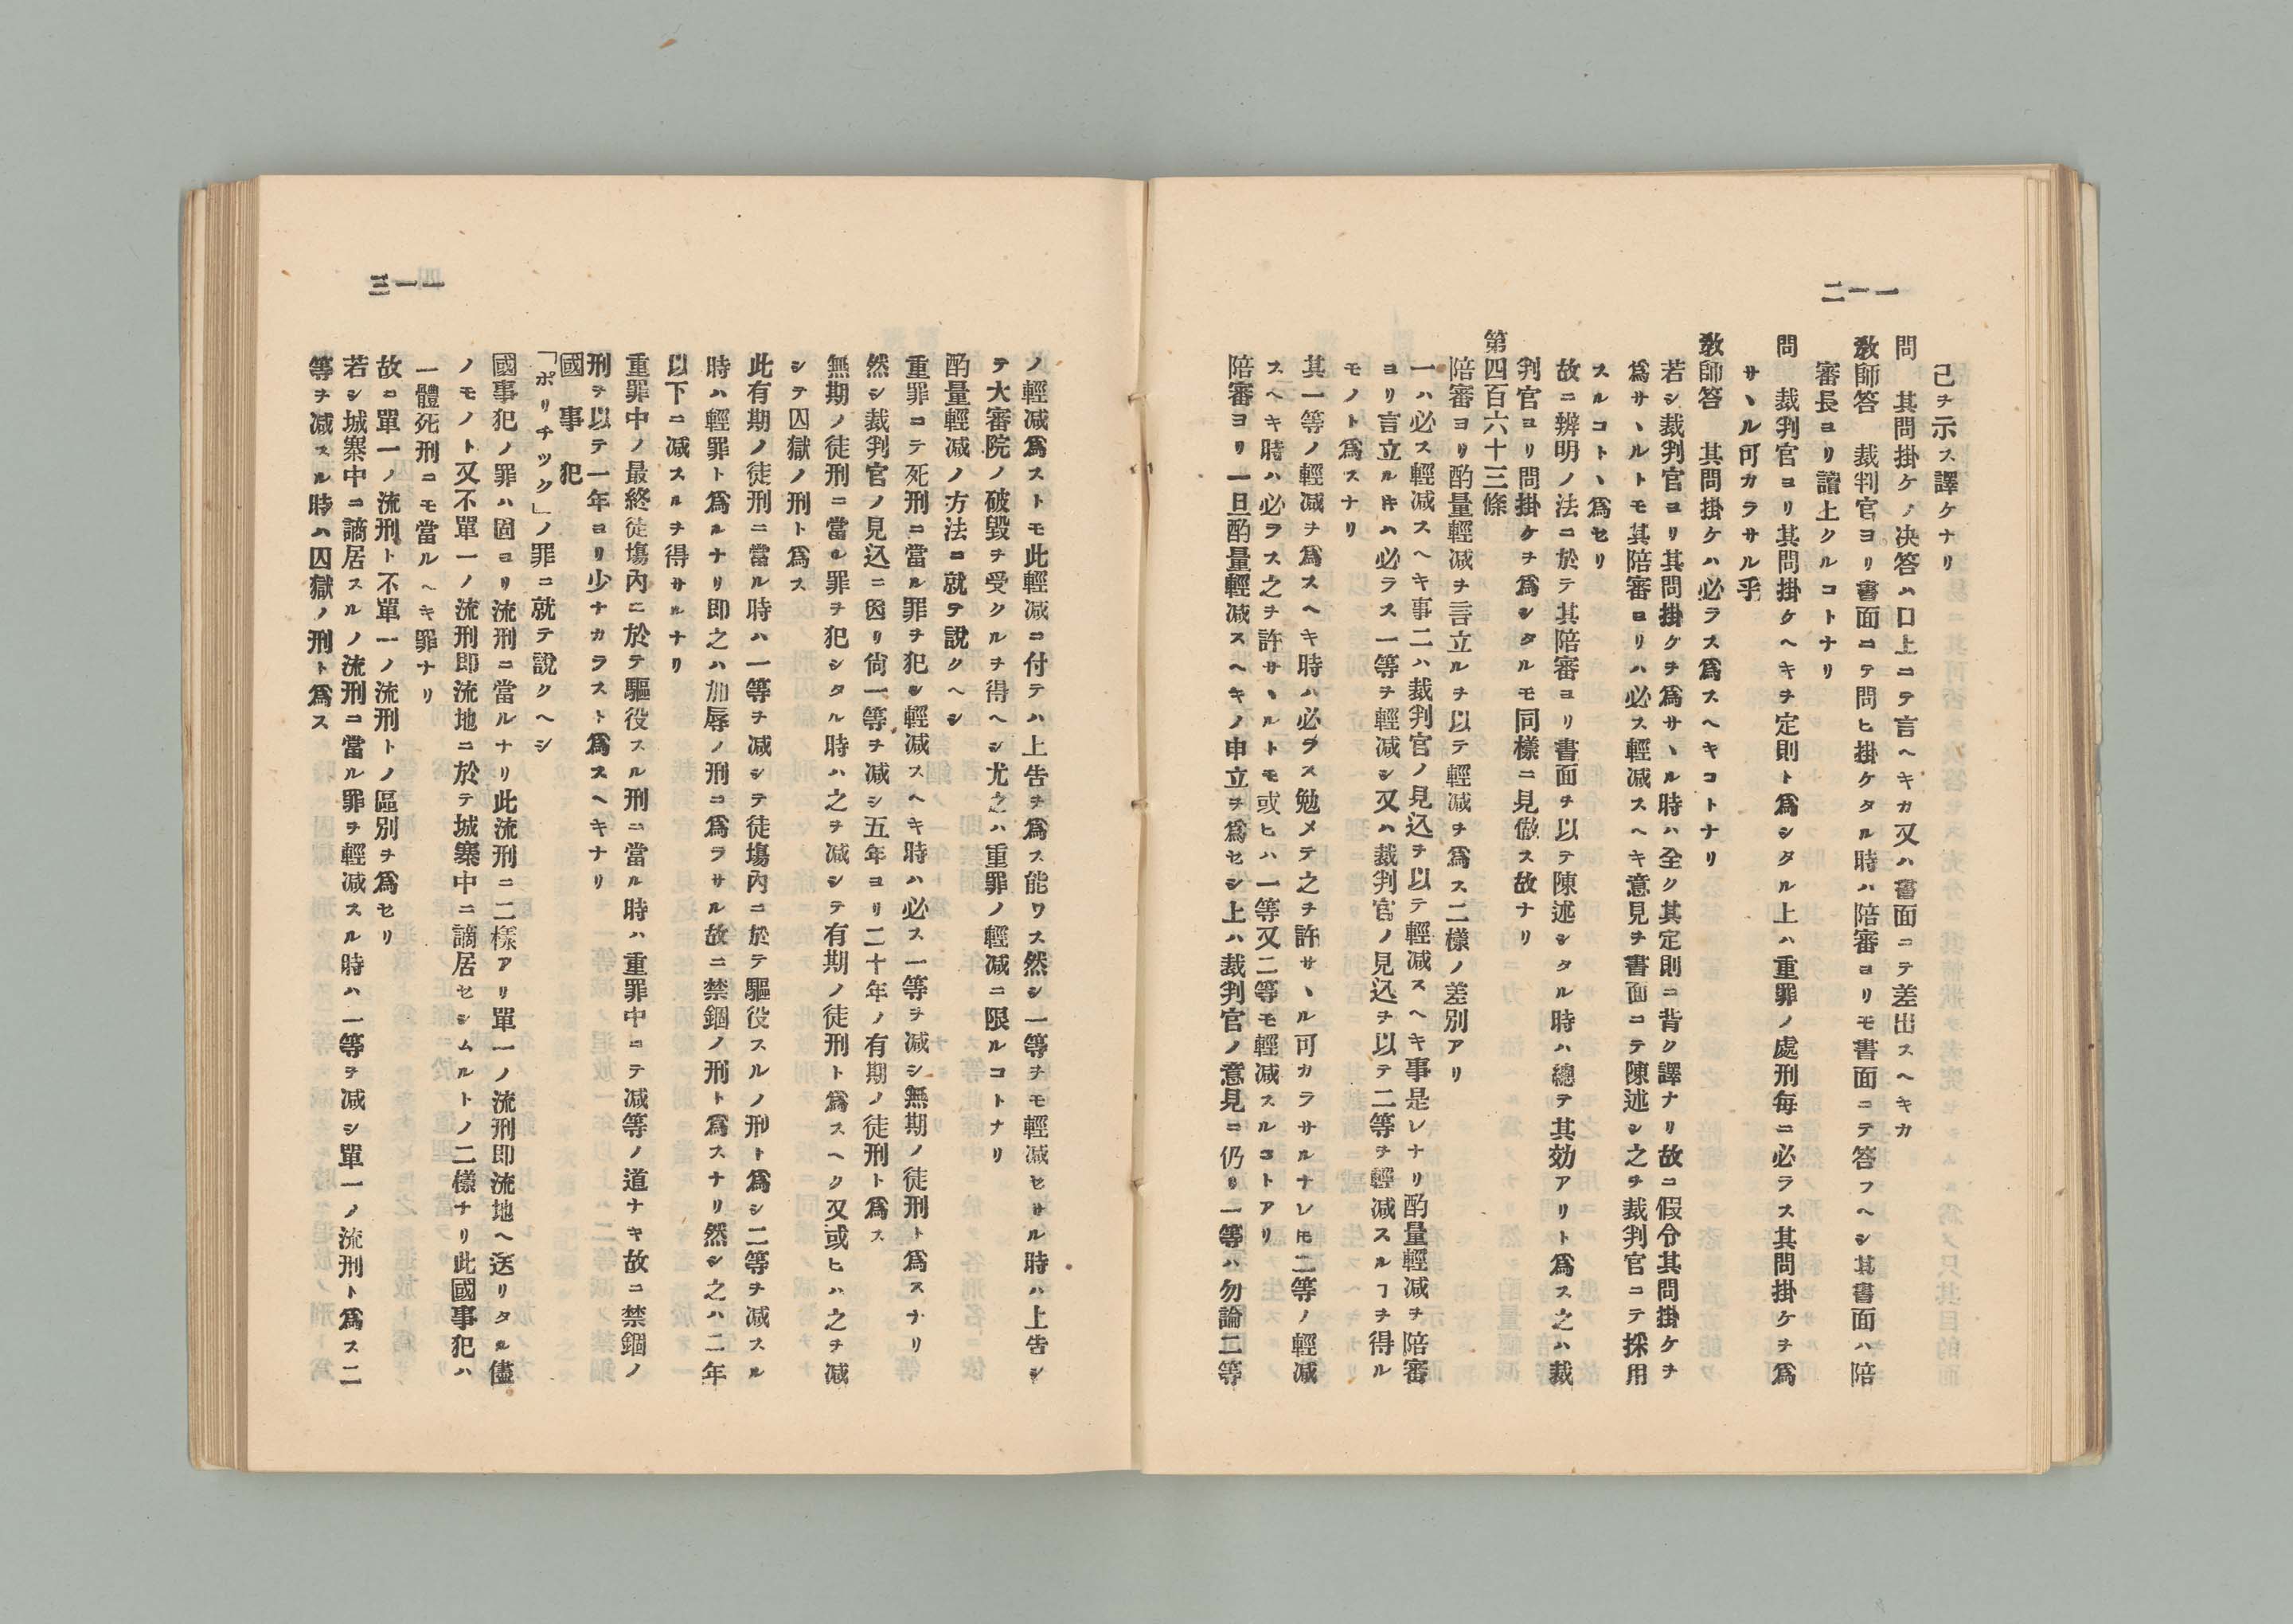 一一二
己ヲ示ス譯ケナリ
問　其問掛ケノ决答ハ口上ニテ言ヘキカ又ハ書面ニテ差出スヘキカ
敎師答　裁判官ヨリ書面ニテ問ヒ掛ケタル時ハ陪審ヨリモ書面ニテ答フヘシ其書面ハ陪
審長ヨリ讀上クルコトナリ
問　裁判官ヨリ其問掛ケヘキヲ定則ト爲シタル上ハ重罪ノ處刑每ニ必ラス其問掛ケヲ爲
サヽル可カラサル乎
敎師答　其問掛ケハ必ラス爲スヘキコトナリ
若シ裁判官ヨリ其問掛ケヲ爲サヽル時ハ全ク其定則ニ背ク譯ナリ故ニ假令其問掛ケヲ
爲サヽルトモ其陪審ヨリハ必ス輕减スヘキ意見ヲ書面ニテ陳述シ之ヲ裁判官ニテ採用
スルコトヽ爲セリ
故ニ辨明ノ法ニ於テ其陪審ヨリ書面ヲ以テ陳述シタル時ハ總テ其効アリト爲ス之ハ裁
判官ヨリ問掛ケヲ爲シタルモ同樣ニ見傚ス故ナリ
第四百六十三條
陪審ヨリ酌量輕减ヲ言立ルヲ以テ輕减ヲ爲ス二樣ノ差別アリ
一ハ必ス輕减スヘキ事二ハ裁判官ノ見込ヲ以テ輕减スヘキ事是レナリ酌量輕减ヲ陪審
ヨリ言立ル𪜈ハ必ラス一等ヲ輕减シ又ハ裁判官ノ見込ヲ以テ二等ヲ輕减スルヿヲ得ル
モノト爲スナリ
其一等ノ輕减ヲ爲スヘキ時ハ必ラス勉メテ之ヲ許サヽル可カラサルナレ𪜈二等ノ輕减
スヘキ時ハ必ラス之ヲ許サヽルトモ或ヒハ一等又二等モ輕减スルコトアリ
陪審ヨリ一旦酌量輕减スヘキノ申立ヲ爲セシ上ハ裁判官ノ意見ニ仍リ一等ハ勿論二等
一一三
ノ輕减爲ストモ此輕减ニ付テハ上告ヲ爲ス能ワス然シ一等ヲモ輕减セサル時ハ上告シ
テ大審院ノ破毀ヲ受クルヲ得ヘシ尤之ハ重罪ノ輕减ニ限ルコトナリ
酌量輕减ノ方法ニ就テ說クヘシ
重罪ニテ死刑ニ當ル罪ヲ犯シ輕减スヘキ時ハ必ス一等ヲ减シ無期ノ徒刑ト爲スナリ
然シ裁判官ノ見込ニ因リ尙一等ヲ减シ五年ヨリ二十年ノ有期ノ徒刑ト爲ス
無期ノ徒刑ニ當ル罪ヲ犯シタル時ハ之ヲ减シテ有期ノ徒刑ト爲スヘク又或ヒハ之ヲ减
シテ囚獄ノ刑ト爲ス
此有期ノ徒刑ニ當ル時ハ一等ヲ减シテ徒塲內ニ於テ驅役スルノ刑ト爲シ二等ヲ减スル
時ハ輕罪ト爲ルナリ即之ハ加辱ノ刑ニ爲ラサル故ニ禁錮ノ刑ト爲スナリ然シ之ハ二年
以下ニ减スルヲ得サルナリ
重罪中ノ最終徒塲內ニ於テ驅役スル刑ニ當ル時ハ重罪中ニテ减等ノ道ナキ故ニ禁錮ノ
刑ヲ以テ一年ヨリ少ナカラスト爲スヘキナリ
國事犯
「ポリチック」ノ罪ニ就テ說クヘシ
國事犯ノ罪ハ固ヨリ流刑ニ當ルナリ此流刑ニ二樣アリ單一ノ流刑即流地ヘ送リタル儘
ノモノト又不單一ノ流刑即流地ニ於テ城寨中ニ謫居セシムルトノ二樣ナリ此國事犯ハ
一體死刑ニモ當ルヘキ罪ナリ
故ニ單一ノ流刑ト不單一ノ流刑トノ區別ヲ爲セリ
若シ城寨中ニ謫居スルノ流刑ニ當ル罪ヲ輕减スル時ハ一等ヲ减シ單一ノ流刑ト爲ス二
等ヲ减スル時ハ囚獄ノ刑ト爲ス